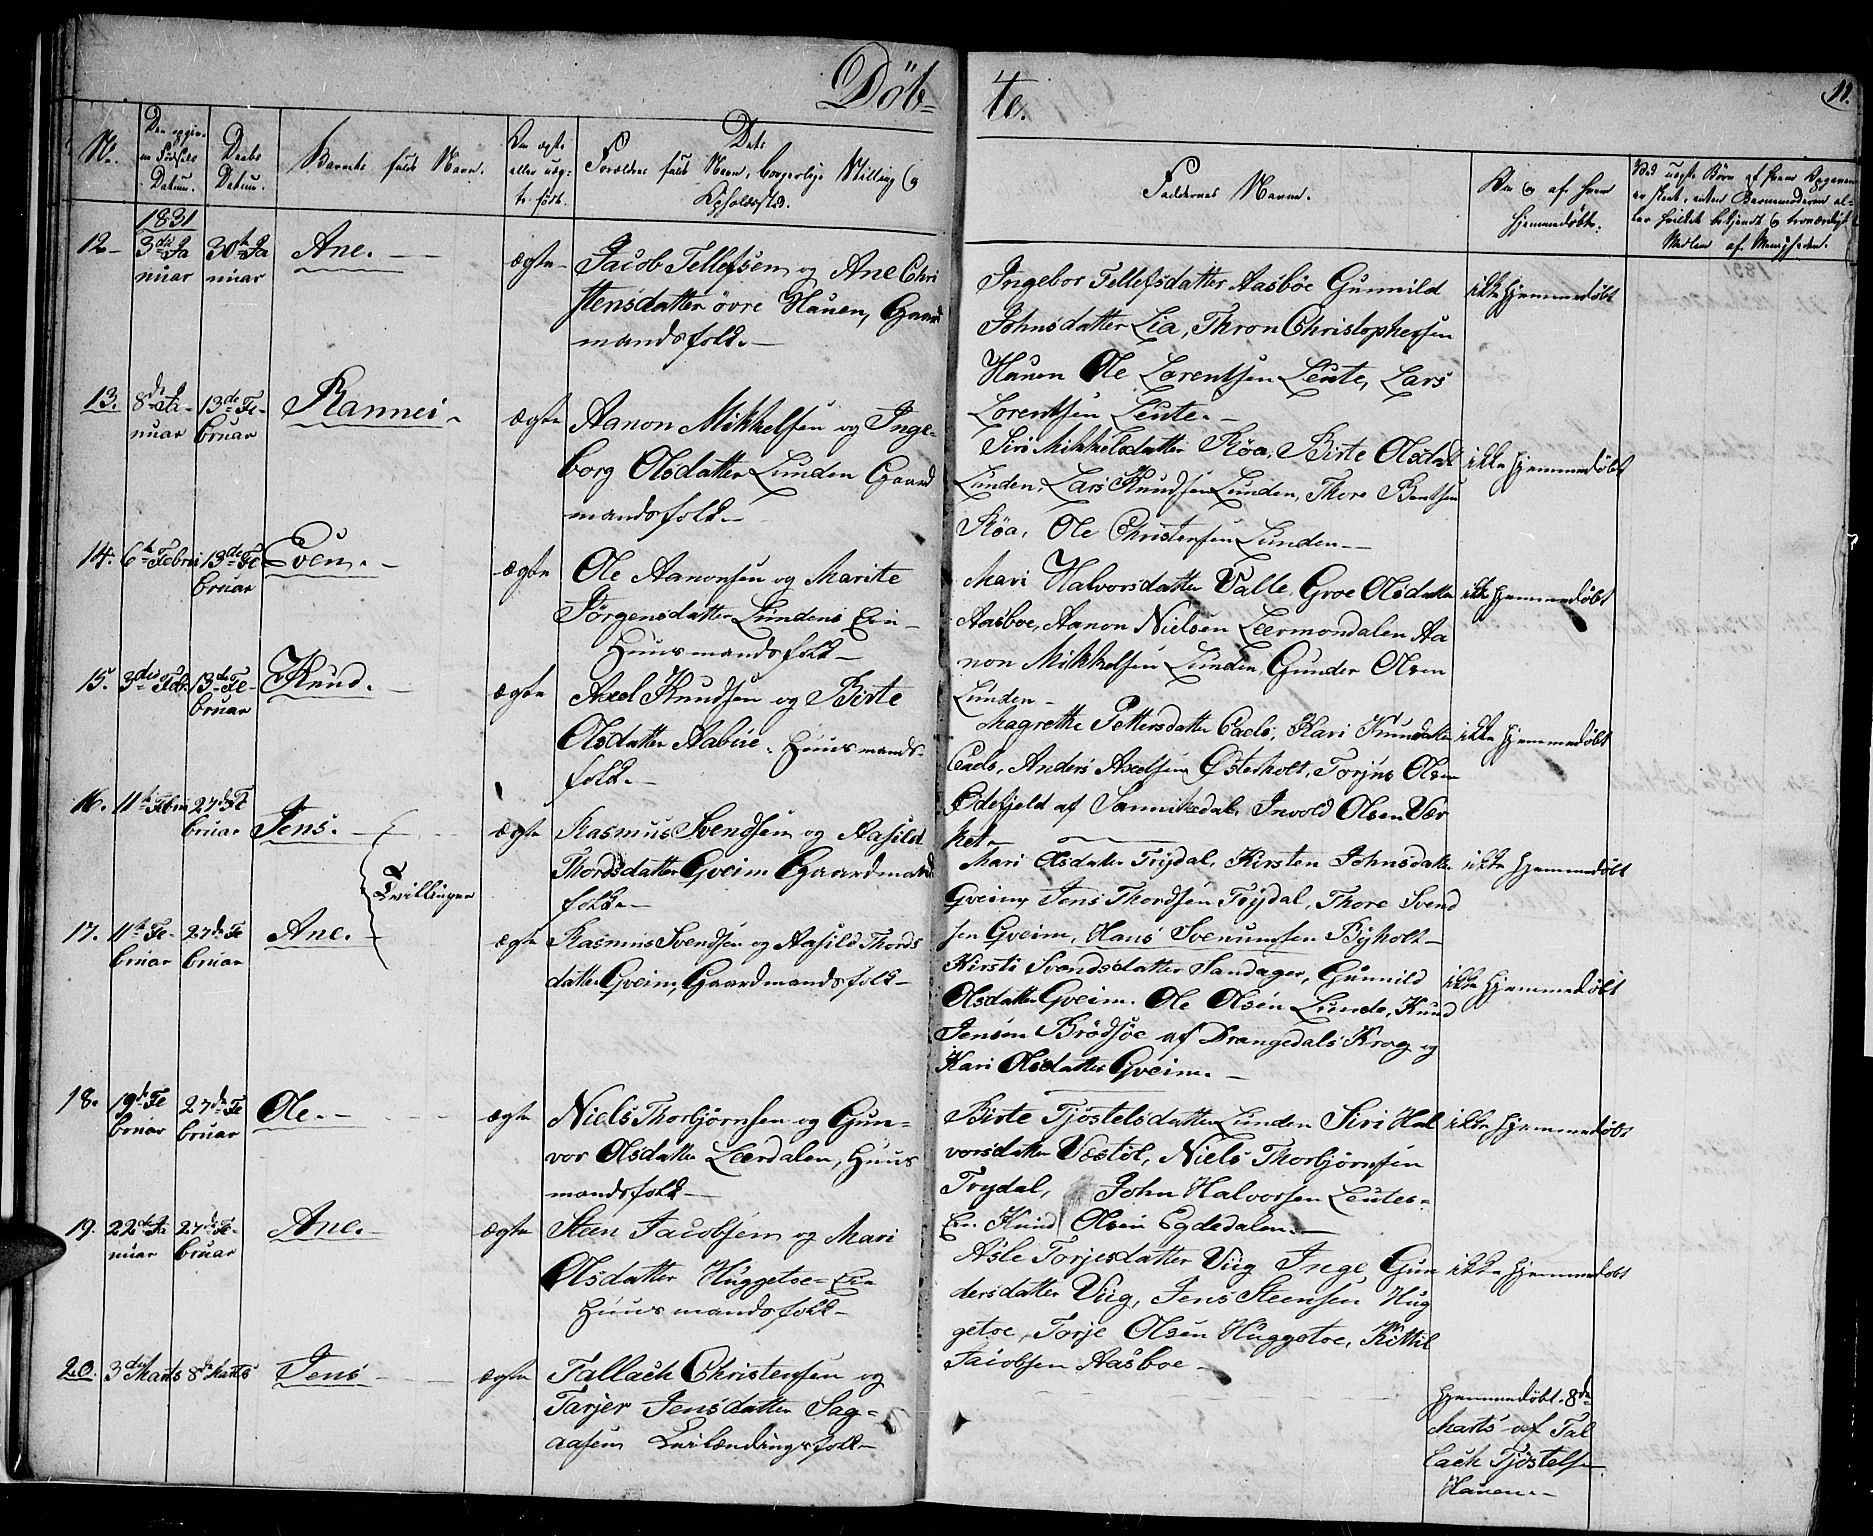 Döb=
te.
11.
No.
Den opgivne Fødsels Datum.
Daabs Datum.
Barnets fulde Navn.
Om ægte eller uægte født.
Dets Forældres fulde Navn, borgerlige Stilling og Opholdssted.
Faddernes Navne.
Om og af hvem hjemmedøbt.
Ved uægte Børn af hvem Angivelsen
Medlem af Menigheden.
1831
12- 3die Januar 30te Januar Ane.- ægte-
Jacob Tellefsen og Ane Chri
stensdatter övre Hauen, Gaard
mandsfolk.-
Ingebor Tellefsdatter Aasböe Gunnild
Johnsdatter Lia, Thron Christophersen
Hauen Ole Lorentsen Leute, Lars
Lorentsen Leute.-
ikke hjemmedöbt
13. 8de Januar 13de Februar Rannei- ægte
Aanon Mikkelsen og Inge-
borg Olsdatter Lunden Gaard
mandsfolk-
Siri Mikkelsdatter Röa, Birte Olsdat
Lunden, Lars Knudsen Lunden, Thore Bentsen
Röa, Ole Christensen Lunden--
ikke hjemmedöbt
14. 6te Febru 13de Februar Even.- ægte
Ole Aanonsen og Marite
Jörgensdatter Lundens Eie-
Huusmandsfolk-
Mari Halvorsdatter Valle, Groe Olsdatter
Aasboe, Aanon Nielsen Leermondalen Aa
non Mikkelsen Lunden, Gunder Olsen
Lunden-
ikke hjemmedöbt
15. 3die Feb. 13de Februar Knud.- ægte
Axel Knudsen og Birte
Olsdatter Aabúe. Huusmands-
folk.-
Magrethe Pettersdatter Eaels, Kari Knuds datter
Eaels, Anders Axelsen Österholt, Torjus Olsen
Ödefjeld af Sannikedal, Invold Olsen Vær
ket-
ikke hjemmedöbt
16. 11te Febru 27de Februar Jens.- ægte
Rasmus Svendsen og Aasild
Thordsdatter Gveim Gaardmands
folk.-
Tvillinger
Mari Olsdatter Tröydal, Kirsten Johnsdatter
Gveim, Jens Thordsen Töydal, Thore Svend
sen Gveim, Hans Svenumsen Byholt-
ikke hjemmedöbt
17. 11te Februar 27de Februar Ane.- ægte
Rasmus Svendsen og Aasild Thords
datter Gveim, Gaardmandsfolk-
Kirsti Svendsdatter Sandager, Gunnild
Olsdatter Gveim. Ole Olsen Lunde, Knud
Jensen Brödsöe af Drangedals Krog og
Kari Olsdatter Gveim.-
ikke hjemmedöbt
18. 19de Februar 27de Februar Ole.- ægte
Niels Thorbjörnsen og Gun-
vor Olsdatter Leerdalen, Huus
mandsfolk-
Birte Tjöstelsdatter Lunden Siri Hal
vorsdatter Væstöl, Niels Thorbjörnsen
Trydal, John Halvorsen Leutes-
Eie. Knud Olsen Egdedalen.-
ikke hjemmedöbt
19. 22de Januar 27de Februar Ane.- ægte
Steen Jacobsen og Mari
Olsdatter Huggetoe-Eie
Huusmandsfolk-
Asle Torjesdatter Viig Inge Gun
dersdatter Viig, Jens Steensen Hug
getoe, Torje Olsen Huggetoe, Kittil
Jacobsen Aasboe-
ikke hjemmedöbt
20. 3die Marts 8de Marts Jens- ægte
Tallach Christensen og
Tarjer Jensdatter Sag-
aasen
Hjemmedöbt. 8de
Marts af Tal
lach Tjöstelsen
Hauen.-